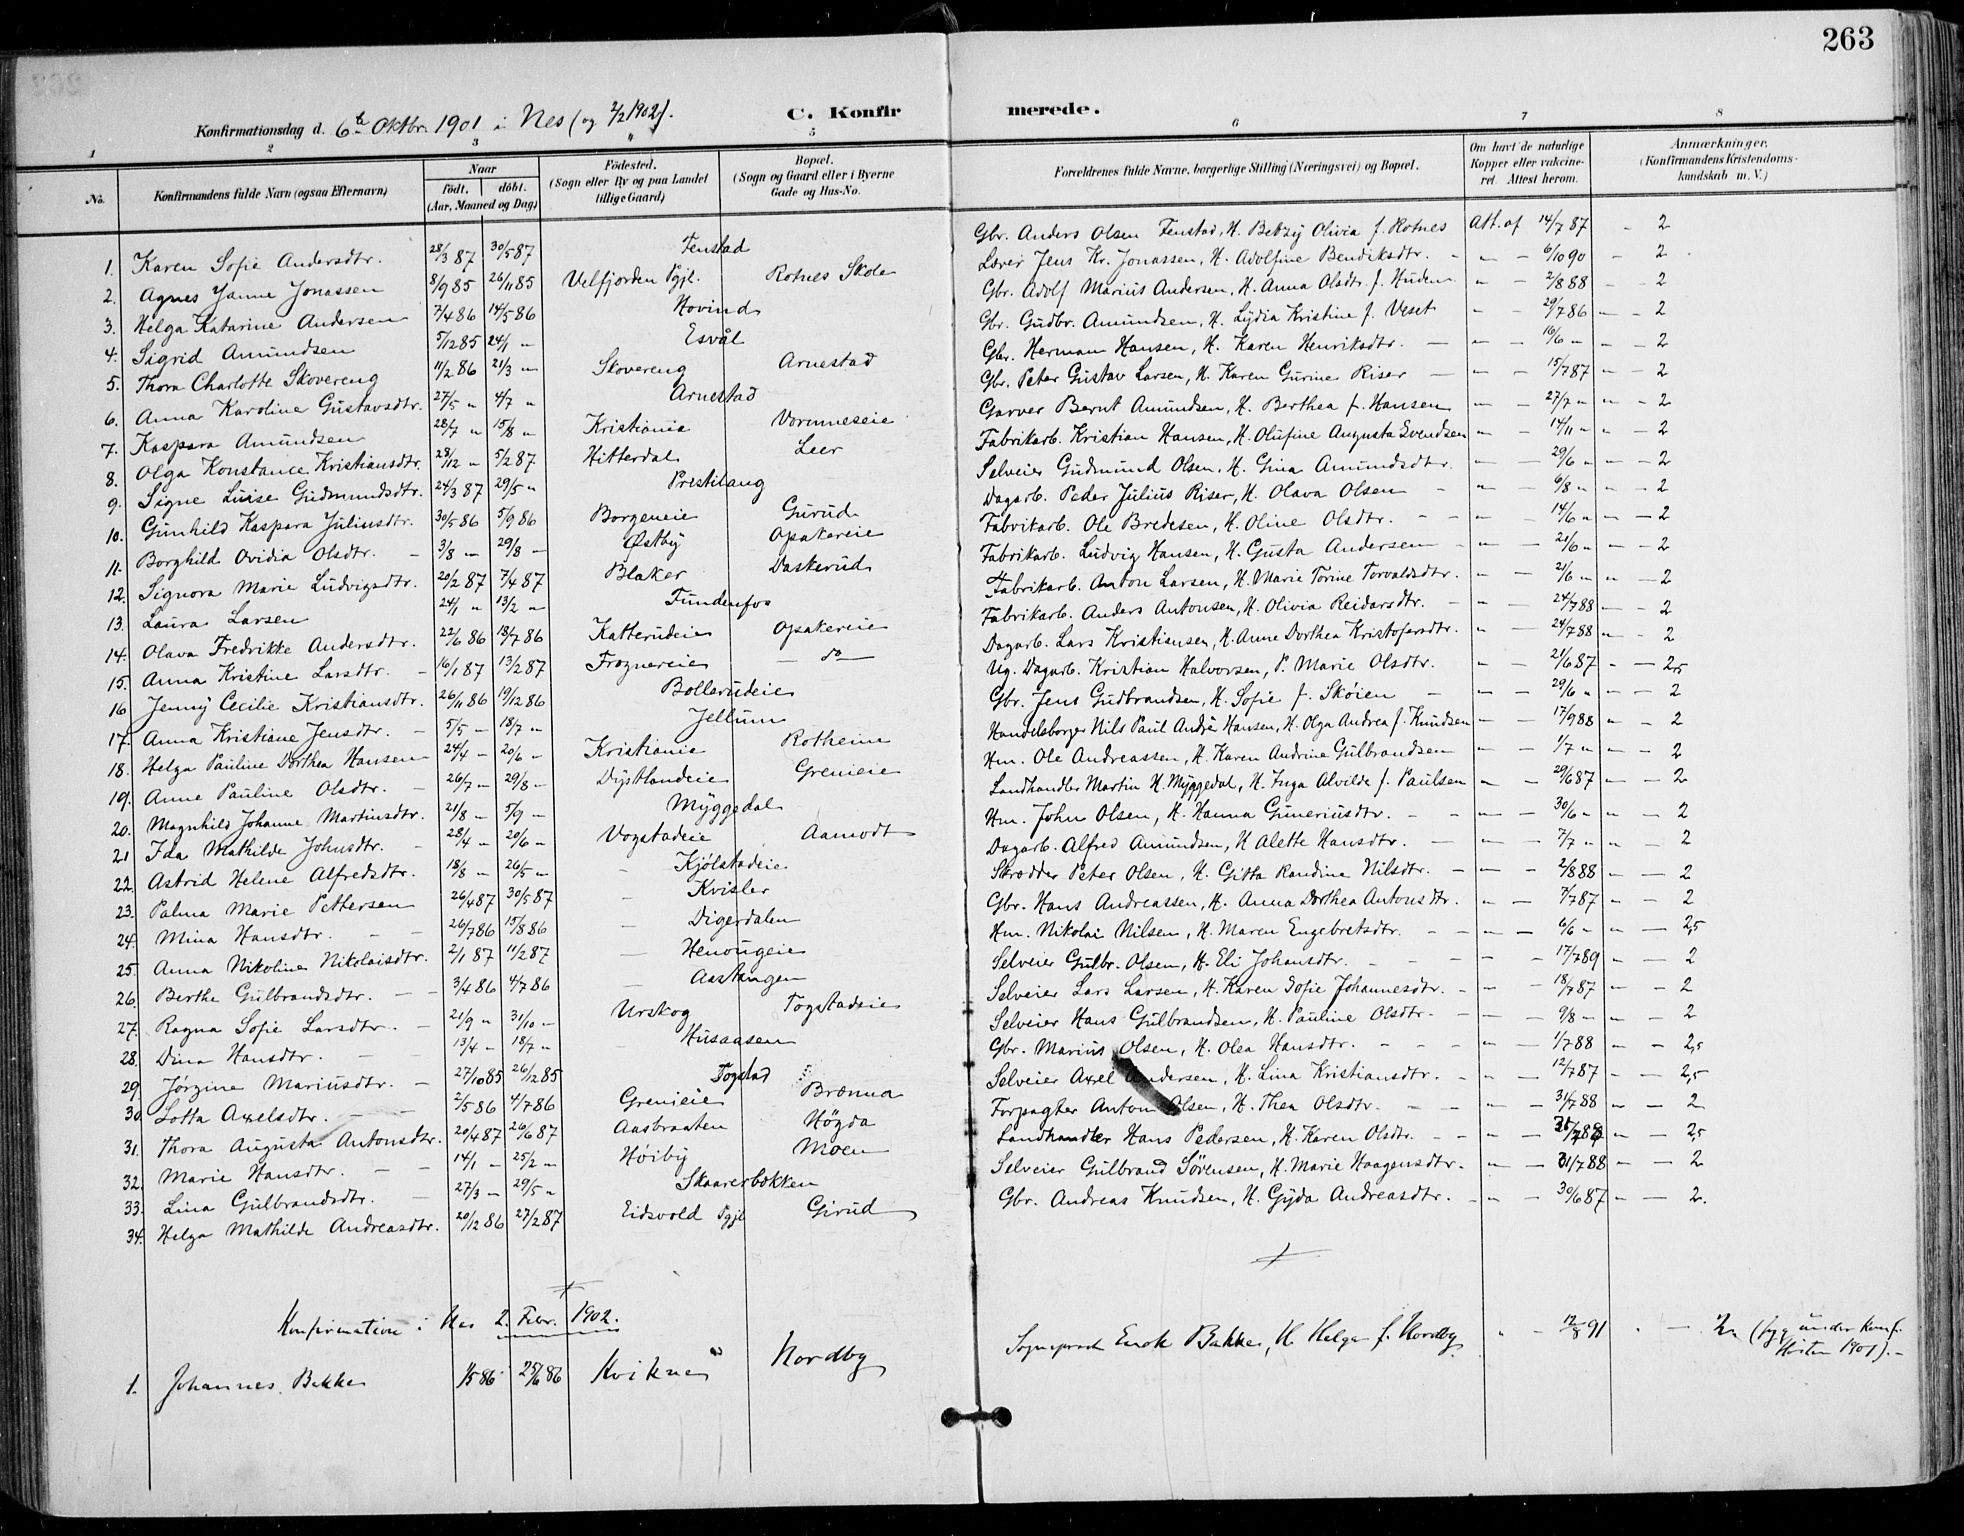 263
Konfirmationsdag d. 6te Oktbr. 1901 i Nes (og 2/2 1902). C. Konfirmerede.
1 2 3 4 5 6 7 8
No. Konfirmandens fulde Navn (ogsaa Efternavn) Naar født. døbt. (Aar, Maaned og Dag) Fødested. (Sogn eller By og paa Landet tillige Gaard) Bopæl. (Sogn og Gaard eller i Byerne Gade og Hus-No. Forældrenes fulde Navne, borgerlige Stilling (Næringsvei) og Bopæl. Om havt de naturlige Kopper eller vakcineret. Attest herom. Anmærkninger. (Konfirmandens Kristendomskundskab m. V.)
1. Karen Sofie Andersdtr. 28/3 87 30/5 87 Fenstad Gbr. Anders Olsen Fenstad, H. Betzy Olivia f. Rotnes Att. af 14/7 87 - 2
2. Agnes Janne Jonassen 8/9 85 26/11 85 Velfjorden Pgjl. Rotnes Skole Lærer Jens Kr. Jonassen, H. Adolfine Bendiksdtr. - - - 6/10 90 - 2
3. Helga Katarine Andersen 7/4 86 14/5 86 Hovind Gbr. Adolf Marius Andersen, H. Anna Olsdtr. f. Huden " - 2/8 88 - - 2
4. Sigrid Amundsen 5/12 85 24/1 " Esvål Gbr. Gudbr. Amundsen, H. Lydia Kristine f. Veset " - 29/7 86 - - 2
5. Thora Charlotte Skovereng 11/2 86 21/3 " Skovereng Arnestad Gbr. Herman Hansen, H. Karen Henriksdtr. - - - 16/6 " - - 2
6. Anna Karoline Gustavsdtr. 27/5 " 4/7 " Arnestad Gbr. Peter Gustav Larsen, H. Karen Gurine Riser - - - 15/7 87 - - 2
7. Kaspara Amundsen 28/7 " 15/8 " Kristiania Vormneseie Garver Bernt Amundsen, H. Berthea f. Hansen - - 27/7 " - - 2
8. Olga Konstance Kristiansdtr. 28/12 " 5/2 87 Hitterdal Leer Fabrikarb. Kristian Hansen, H. Olufine Augusta Svendsen - - 14/11 " - 2
9. Signe Luise Gudmundsdtr. 24/3 87 29/5 " Prestilang Selveier Gudmund Olsen, H. Gina Amundsdtr. - - 29/6 " - - 2
10. Gunhild Kaspara Juliusdtr. 30/5 86 5/9 86 Borgeneie Gurud Dagarb. Peder Julius Riser, H. Olava Olsen - - - 6/8 " - - 2
11. Borghild Ovidia Olsdtr. - 3/8 - 29/8 - Østby Opakereie Fabrikarb. Ole Bredesen, H. Oline Olsdtr. - - - 14/6 " - - 2
12. Signora Marie Ludvigsdtr. 20/2 87 7/4 87 Blaker Daskerud Fabrikarb. Ludvig Hansen, H. Gusta Andersen - - - 21/6 " - - 2
13. Laura Larsen 24/1 " 13/2 " Fundenfos Fabrikarb. Anton Larsen, H. Marie Torine Torvaldsdtr. - - 21/6 " " - 2
14. Olava Fredrikke Andersdtr. 22/6 86 18/7 86 Katterudeie Opakereie Fabrikarb. Anders Antonsen, H. Olivia Reidarsdtr. - - - 24/7 88 - - 2
15. Anna Kristine Larsdtr. - 16/1 87 13/2 87 Frognereie - do - Dagarb. Lars Kristiansen, H. Anne Dorthea Kristofersdtr. " - 24/7 88 - - 2
16 Jenny Cecilie Kristiansdtr. 26/11 86 19/12 86 Bollerudeie Ug. Dagarb. Kristian Halvorsen, P. Marie Olsdtr. - - 21/6 87 - - 2,5
17. Anna Kristiane Jensdtr. - 5/5 - 18/7 " Jellum Gbr. Jens Gudbrandsen, H. Sofie f. Skøien - - - 29/6 " - - 2
18. Helga Pauline Dorthea Hansen 24/4 - 20/6 - Kristiania Rotheim Handelsborger Nils Paul André Hansen, H. Olga Andrea f. Knudsen - - 17/9 88 - - 2
19. Anne Pauline Olsdtr. - 26/7 - 29/8 - Dystlandeie Grenieie Hm. Ole Andreassen, H. Karen Andrine Gulbrandsen - - 1/7 " - - 2
20. Magnhild Johanne Martinsdtr. 21/8 - 5/9 - Myggedal Landhandler Martin H. Myggedal, H. Inga Alvilde f. Paulsen - - 29/6 87 - - 2
21 Ida Mathilde Johnsdtr. - 28/4 - 20/6 - Vogstadeie Aamodt Hm. John Olsen, H. Hanna Guneriusdtr. - - - 30/6 " - - 2
22. Astrid Helene Alfredsdtr. - 18/8 - 26/5 - Kjølstadeie Dagarb. Alfred Amundsen, H Alette Hansdtr. - - - 7/7 " " - 2
23. Palma Marie Pettersen 26/4 87 30/5 87 - Kvisler Skrædder Peter Olsen, H. Gitta Randine Nilsdtr. - - - 2/8 88 - - 2
24. Mina Hansdtr. - - 26/7 86 15/8 86 - Digerdalen Gbr. Hans Andreassen, H. Anna Dorthea Antonsdtr. - - 7/7 87 - - 2
25. Anna Nikoline Nikolaisdtr. - 2/1 87 11/2 87 - Henougeie Hm. Nikolai Nilsen, H. Maren Engebretsdtr. - - - 6/6 " - - 2,5
26. Berthe Gulbrandsdtr. - - 3/4 86 4/7 86 - Aastangen Selveier Gulbr. Olsen, H. Eli Johansdtr. - - - - 17/7 89 - - 2
27. Ragna Sofie Larsdtr. - - 21/9 " 31/10 - Urskog Togstadeie Selveier Lars Larsen, H. Karen Sofie Johannesdtr. - - - 18/7 87 - - 2
28. Dina Hansdtr. - - 13/4 - 18/7 - - Husaasen Selveier Hans Gulbrandsen, H. Pauline Olsdtr. - - - 9/8 - - - 2
29. Jørgine Mariusdtr. - 27/10 85 26/12 85 Togstad Gbr. Marius Olsen, H. Olea Hansdtr. - - - " - 1/7 88 - - 2,5
30. Lotta Axelsdtr. - - 2/5 86 4/7 86 Grenieie Brænna Selveier Axel Andersen, H. Lina Kristiansdtr. - - - 12/7 87 - - 2,5
31. Thora Augusta Antonsdtr. 20/4 87 26/6 87 Aasbraaten Høgda Forpagter Anton Olsen, H. Thea Olsdtr. - - " - 31/7 88 - - 2
32. Marie Hansdtr. - - 14/1 - 25/2 - Høiby Moen Landhandler Hans Pedersen, H. Karen Olsdtr. - - " - " - 2,5
33. Lina Gulbrandsdtr. - 27/3 - 29/5 " Skaarerbækken Selveier Gulbrand Sørensen, H. Marie Haagensdtr. - " - 31/7 88 - - 2
34. Helga Mathilde Andreasdtr. 20/12 86 27/2 87 Eidsvold Pgjl Girud Gbr. Andreas Knudsen, H. Gyda Andreasdtr. - " - 30/6 87 - - 2.
Konfirmation i Nes 2. Febr. 1902.
1. Johannes Bakke 1/5 86 25/6 86 Kviknes Nordby Sogneprest Enok Bakke, H. Helga f. Nordby " - 12/8 91 " - 2 (syg under Konf. Høsten 1901). -